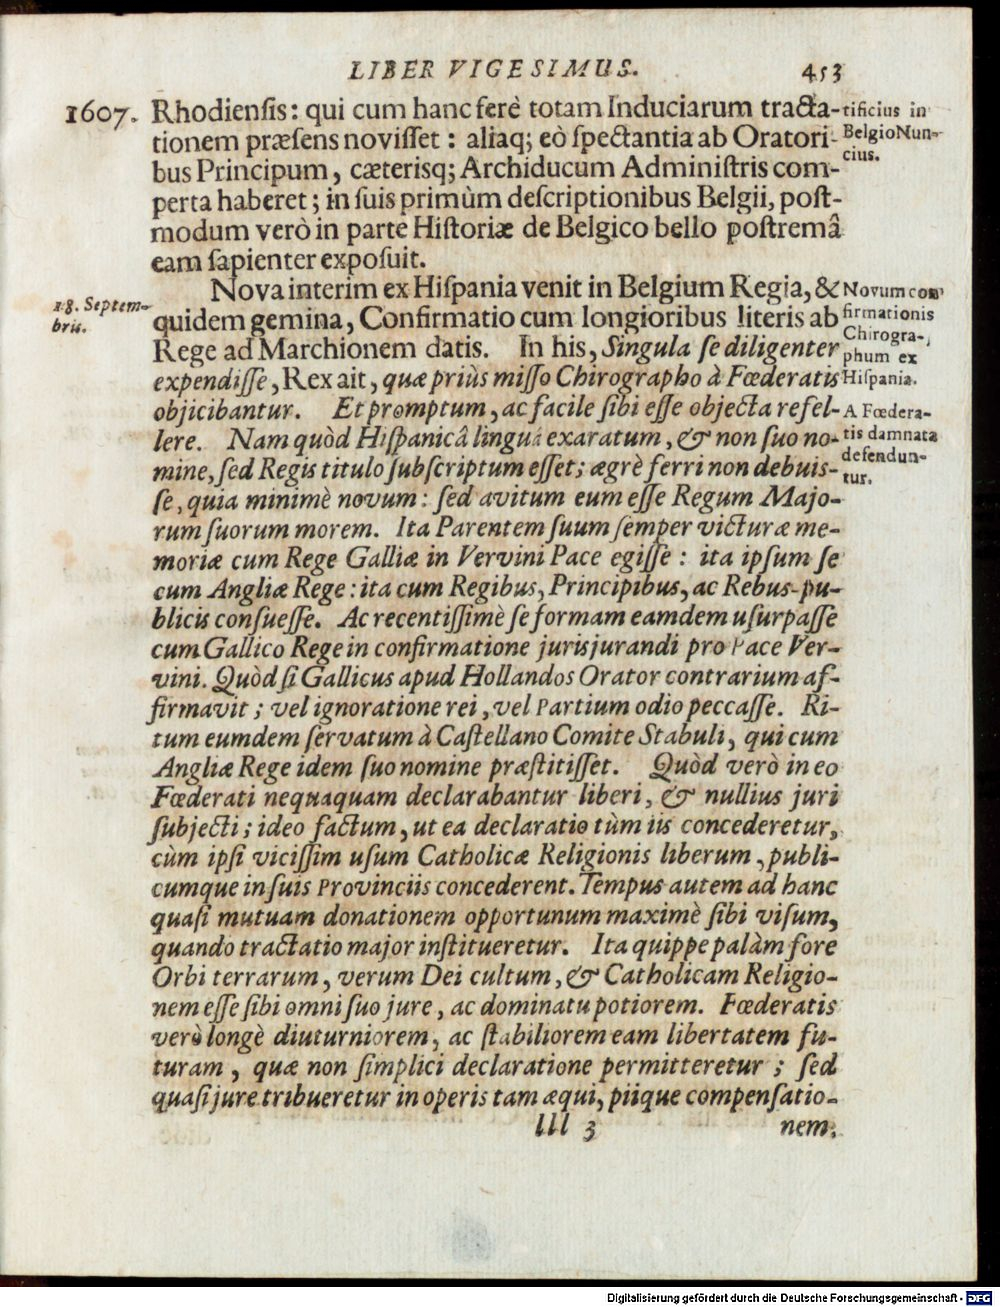 LIBER VIGESIMUS. 453
1607. Rhodiensis: qui cum hanc ferè totam Induciarum tracta- tificius in
tionem præsens novisset: aliaq; eò spectantia ab Oratori- Belgio Nun-
bus Principum, cæterisq; Archiducum Administris com- cius.
perta haberet; in suis primùm descriptionibus Belgii, post-
modum verò in parte Historiæ de Belgico bello postremâ
eam sapienter exposuit.
Nova interim ex Hispania venit in Belgium Regia, & Novum con-
18. Septem- quidem gemina, Confirmatio cum longioribus literis ab firmationis
bris. Rege ad Marchionem datis. In his, Singula se diligenter Chirogra-
phum ex
expendisse, Rex ait, quæ priùs misso Chirographo à Fœderatis Hispania.
objicibantur. Et promptum, ac facile sibi esse objecta refel- A Fœdera-
lere. Nam quòd Hispanicâ linguâ exaratum, & non suo no- tis damnata
mine, sed Regis titulo subscriptum esset; ægrè ferri non debuis- defendun-
tur.
se, quia minimè novum: sed avitum eum esse Regum Majo-
rum suorum morem. Ita Parentem suum semper victuræ me-
moriæ cum Rege Galliæ in Vervini Pace egisse: ita ipsum se
cum Angliæ Rege: ita cum Regibus, Principibus, ac Rebus-pu-
blicis consuesse. Ac recentissimè se formam eamdem usurpasse
cum Gallico Rege in confirmatione jurisjurandi pro Pace Ver-
vini. Quòd si Gallicus apud Hollandos Orator contrarium af-
firmavit; vel ignoratione rei, vel Partium odio peccasse. Ri-
tum eumdem servatum à Castellano Comite Stabuli, qui cum
Angliæ Rege idem suo nomine præstitisset. Quòd verò in eo
Fœderati nequaquam declarabantur liberi, & nullius juri
subjecti; ideo factum, ut ea declaratio tùm iis concederetur,
cùm ipsi vicissim usum Catholicæ Religionis liberum, publi-
cumque in suis Provinciis concederent. Tempus autem ad hanc
quasi mutuam donationem opportunum maximè sibi visum,
quando tractatio major institueretur. Ita quippe palàm fore
Orbi terrarum, verum Dei cultum, & Catholicam Religio-
nem esse sibi omni suo jure, ac dominatu potiorem. Fœderatis
verò longè diuturniorem, ac stabiliorem eam libertatem fu-
turam, quæ non simplici declaratione permitteretur; sed
quasi jure tribueretur in operis tam æqui, piique compensatio-
lll 3 nem.
Digitalisierung gefördert durch die Deutsche Forschungsgemeinschaft - DFG